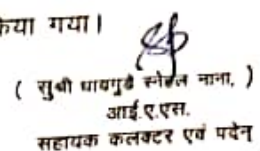 केया गया।
( सुश्री धायगुडे स्नेहल नाना, )
आई.ए.एस.
सहायक कलक्टर एवं पदेन्